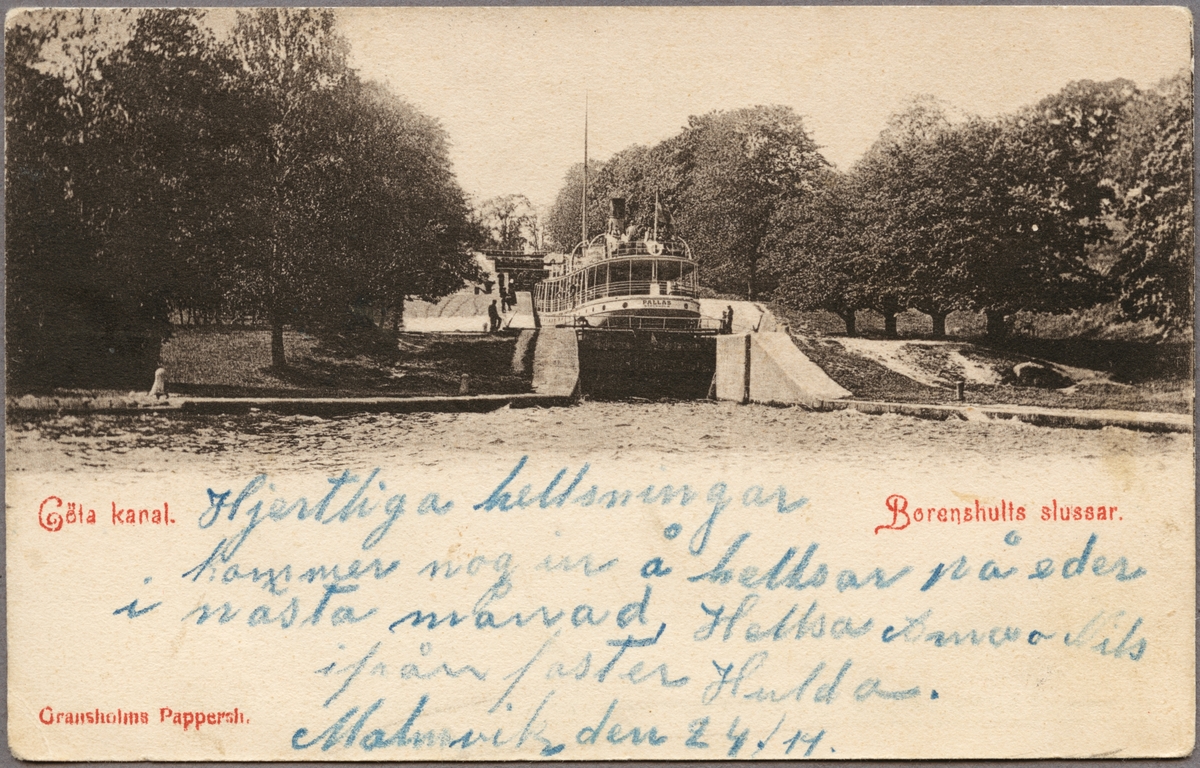 PALLAS
Göta kanal.
Borenshults slussar.
Hjertliga hellsningar
kommer nog in å hellsar på eder
i nästa månad, Hellsa Anna o Nils
ifrån faster Hulda.
Malmvik den 24/11.
Gransholms Pappersh.